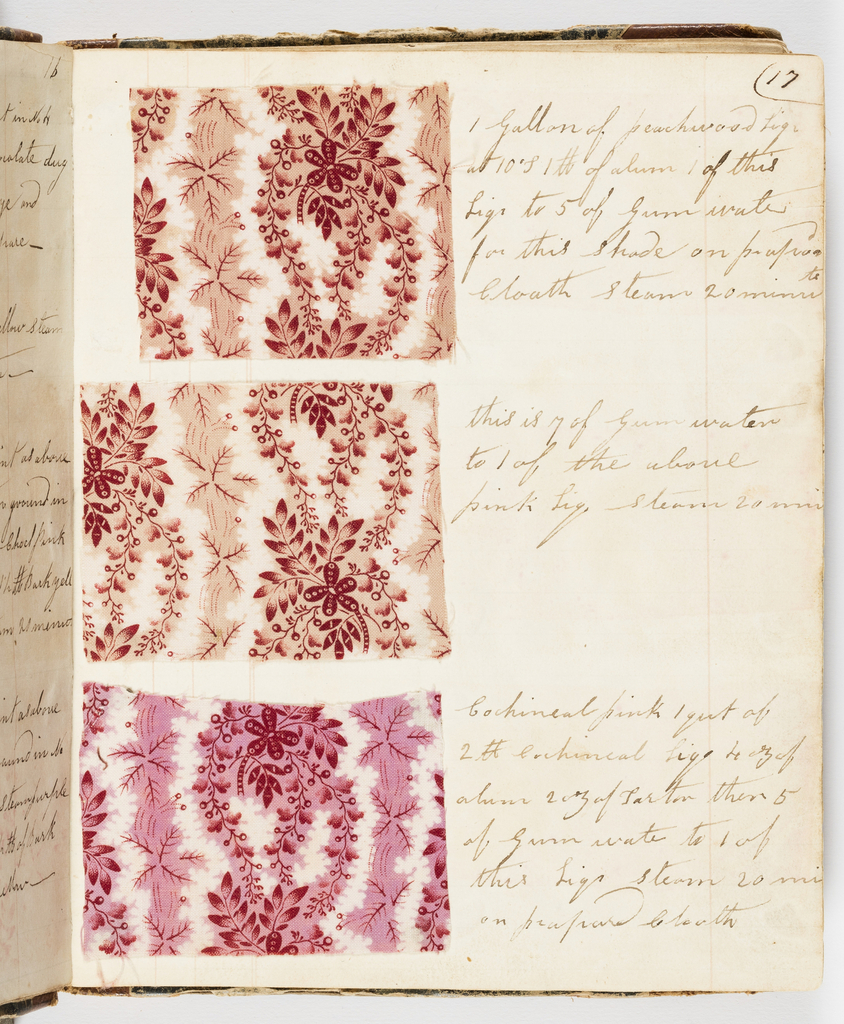 16
t in No 4
colate dug
ge and
llow steam
nt as above
ground in
Chocl pink
Bark yell
nt as above
ound in No
steam purple
tt of Bark
ellow
17
1 Gallon of peachwood Liqr
at 10's 1 tt of alum 1 of this
Liqr to 5 of Gum water
for this shade on prepared
Cloath steam 20 minits
this is 7 of Gum water
to 1 of the above
pink Liqr steam 20 min
Cochineal pink 1 qut of
2 tt Cochineal Liqr 4 oz of
alum 2 oz of Tarter then 5
of Gum wate to 1 of
this Liqr steam 20 mi
on prepared Cloath